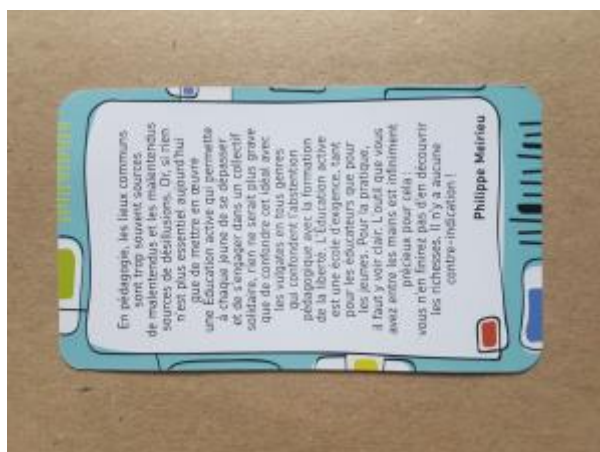 En pédagogie, les lieux communs
sont trop souvent sources
de malentendus et les malentendus
sources de désillusions. Or, si rien
n'est plus essentiel aujourd'hui
que de mettre en œuvre
une Éducation active qui permette
à chaque jeune de se dépasser
et de s'engager dans un collectif
solidaire, rien ne serait plus grave
que de confondre cet idéal avec
les vulgates en tous genres
qui confondent l'abstention
pédagogique avec la formation
de la liberté. L'Éducation active
est une école d'exigence, tant
pour les éducateurs que pour
les jeunes. Pour la pratiquer,
il faut y voir clair. L'outil que vous
avez entre les mains est infiniment
précieux pour cela :
vous n'en finirez pas d'en découvrir
les richesses. Il n'y a aucune
contre-indication !
Philippe Meirieu